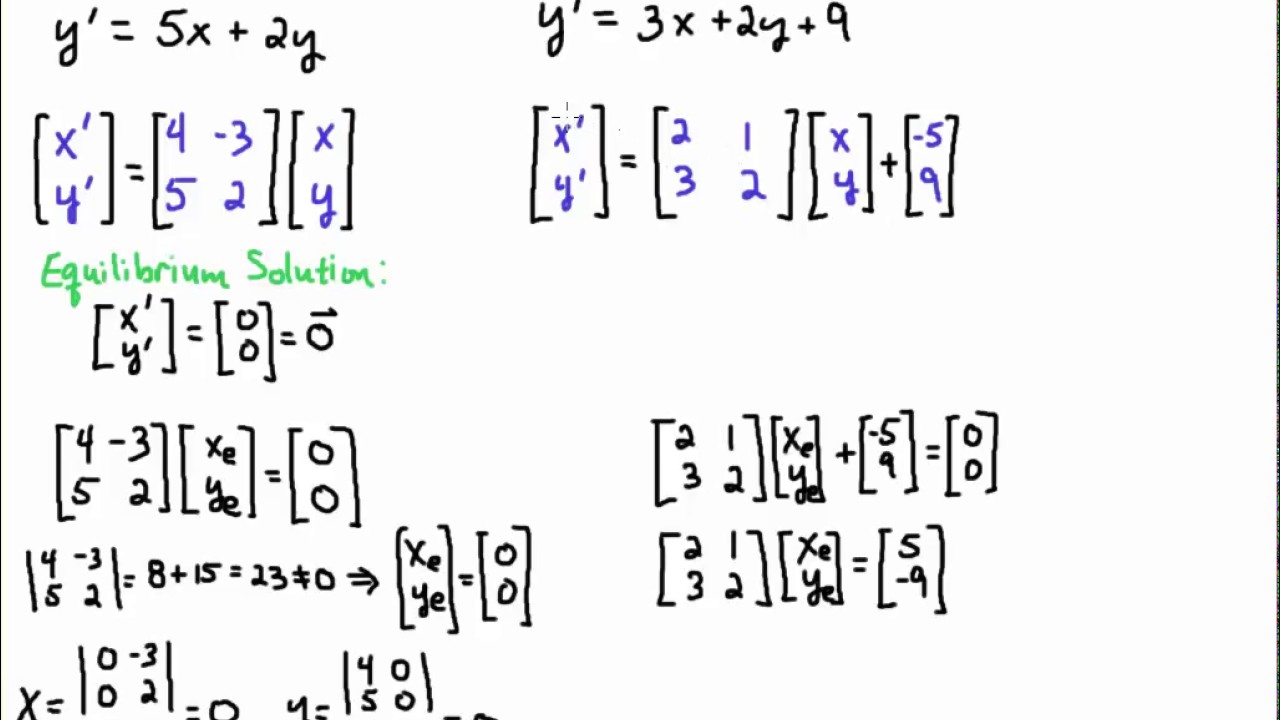 y' = 5x + 2y
y' = 3x + 2y + 9
[x' y'] = [4 -3; 5 2] [x y]
[x' y'] = [2 1; 3 2] [x y] + [-5 9]
Equilibrium Solution:
[x' y'] = [0 0] = 0⃗
[4 -3; 5 2] [xₑ yₑ] = [0 0]
[2 1; 3 2] [xₑ yₑ] + [-5 9] = [0 0]
|4 -3; 5 2| = 8 + 15 = 23 ≠ 0 ⇒ [xₑ yₑ] = [0 0]
[2 1; 3 2] [xₑ yₑ] = [5 -9]
x = |0 -3; 0 2| = 0
y = |4 0; 5 0| =